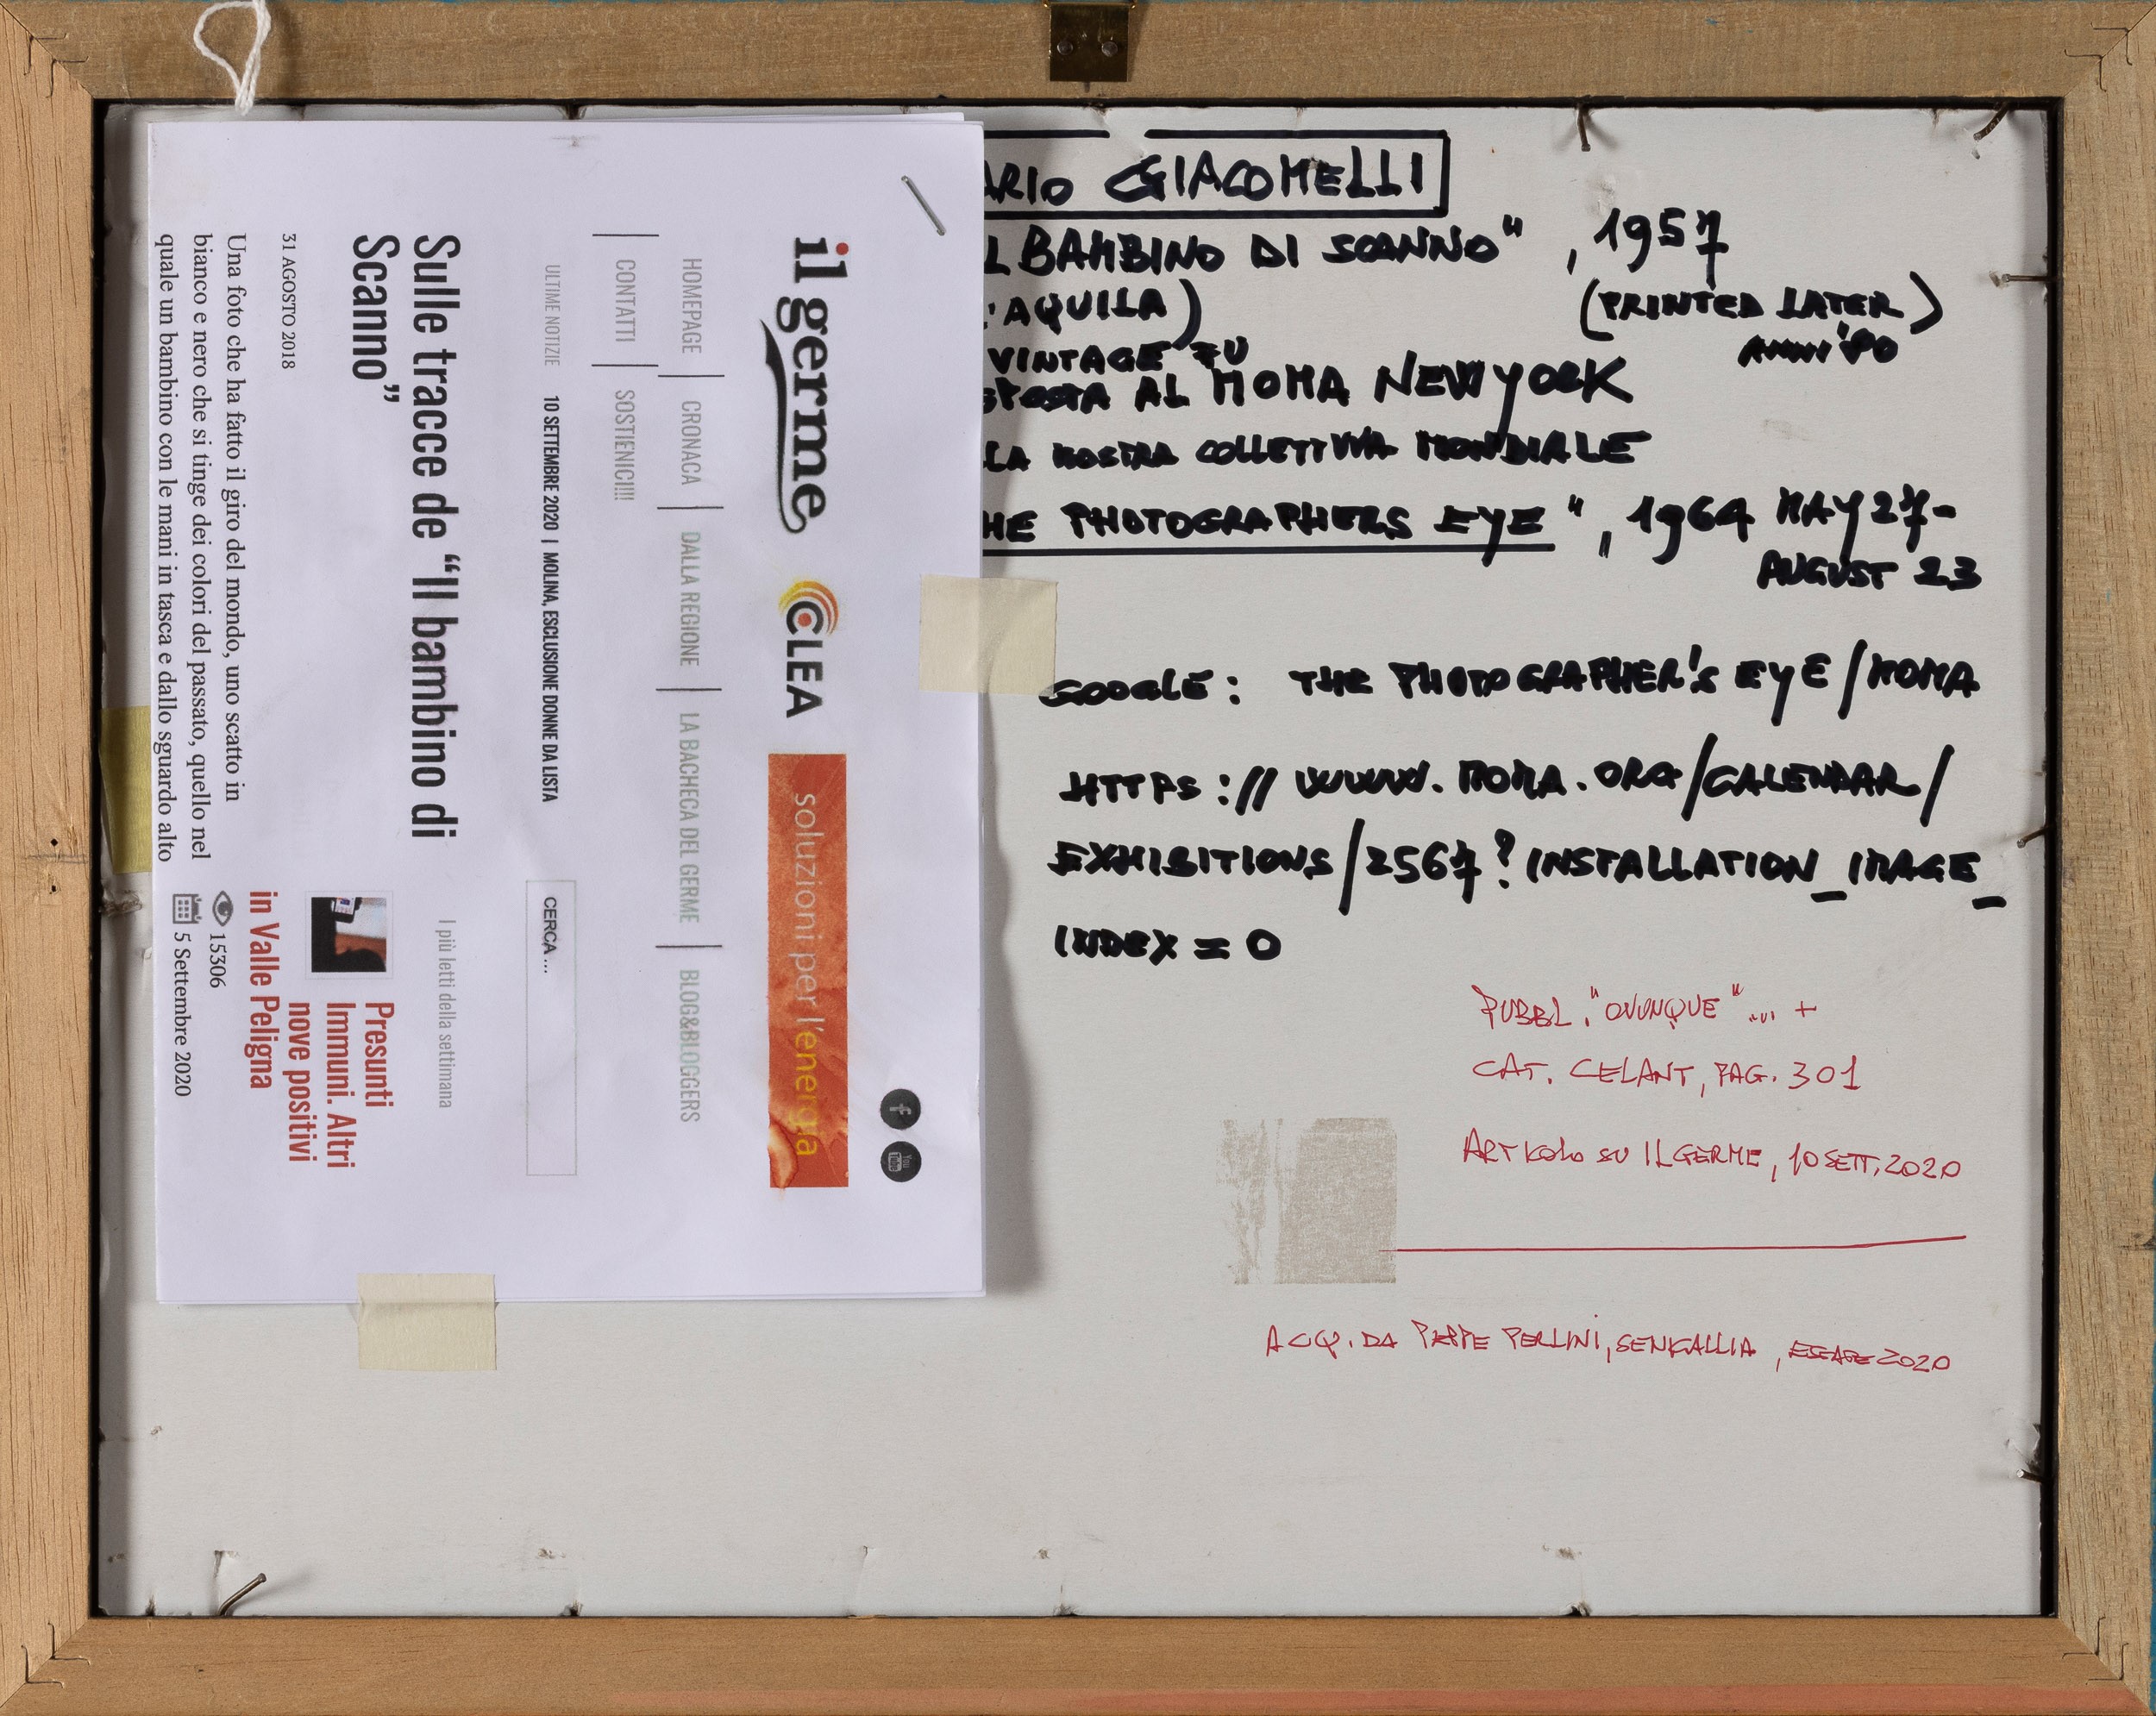 ARIO GIACOMELLI
L BAMBINO DI SCANNO", 1957
'AQUILA) (PRINTED LATER)
ANNI '80
VINTAGE FU
SPOSTA AL MOMA NEW YORK
LA MOSTRA COLLETTIVA MONDIALE
HE PHOTOGRAPHERS EYE", 1964 MAY 27-
AUGUST 23
GOOGLE: THE PHOTOGRAPHER'S EYE/MOMA
HTTPS://WWW.MOMA.ORG/CALENDAR/
EXHIBITIONS/2567?INSTALLATION_IMAGE_
INDEX=0
PUBBL. "OVUNQUE"... +
CAT. CELANT, PAG. 301
ARTICOLO SU IL GERME, 10 SETT. 2020
ACQ. DA PEPPE PERLINI, SENIGALLIA, 2020
f
You Tube
il germe
CLEA
soluzioni per l'energia
HOMEPAGE
CRONACA
DALLA REGIONE
LA BACHECA DEL GERME
BLOG&BLOGGERS
CONTATTI
SOSTIENICI!!!!
ULTIME NOTIZIE
10 SETTEMBRE 2020 | MOLINA, ESCLUSIONE DONNE DA LISTA
CERCA ...
Sulle tracce de “Il bambino di
Scanno”
31 AGOSTO 2018
Una foto che ha fatto il giro del mondo, uno scatto in
bianco e nero che si tinge dei colori del passato, quello nel
quale un bambino con le mani in tasca e dallo sguardo alto
I più letti della settimana
Presunti
Immuni. Altri
nove positivi
in Valle Peligna
15306
5 Settembre 2020